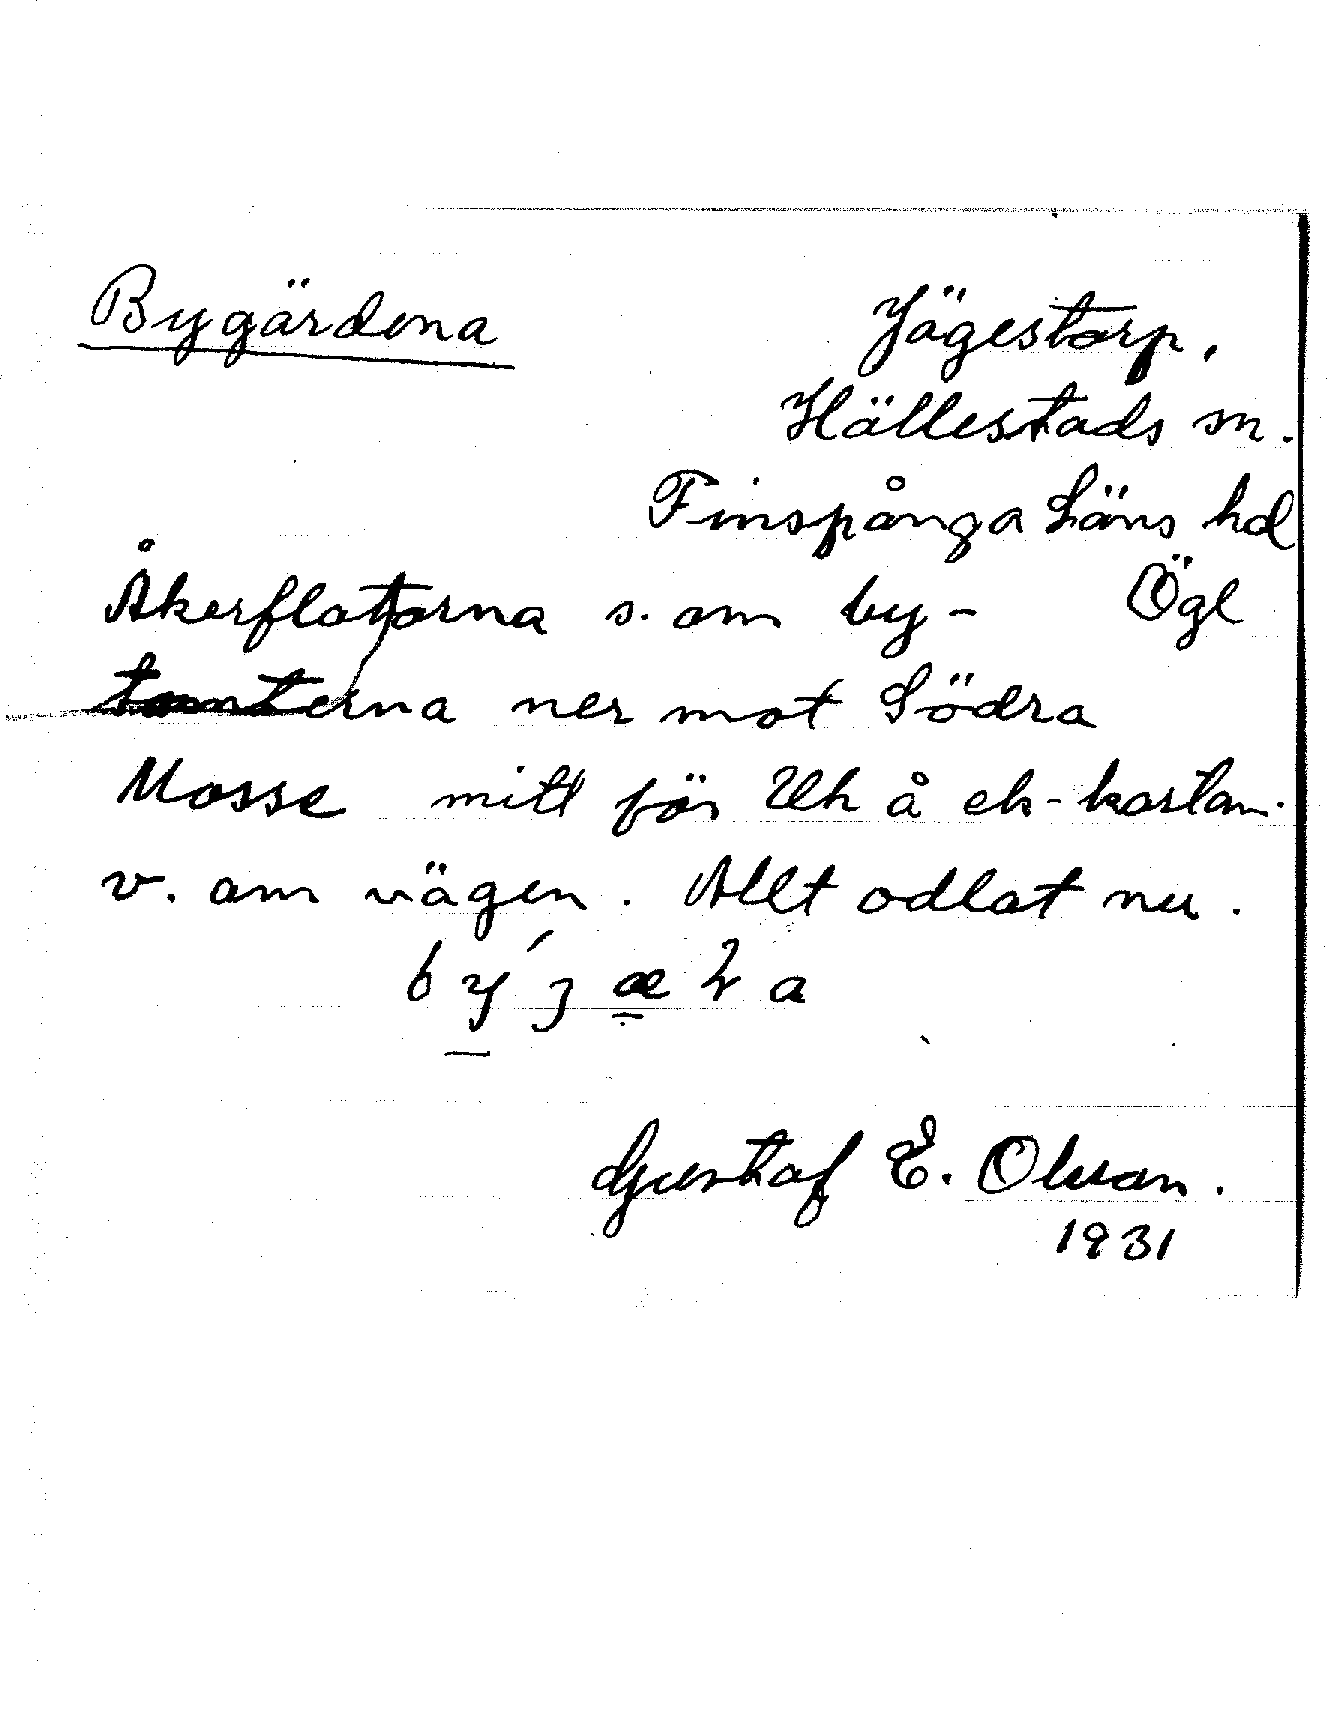 Bygärdena
Jägestorp.
Hällestads sn.
Finspånga Läns hd
Ögl
Åkerflatorna s. om by-
tomterna ner mot Södra
Mosse mitt för Uk å ek-kartan.
v. om vägen. Allt odlat nu.
Gustaf E. Olsson.
1931